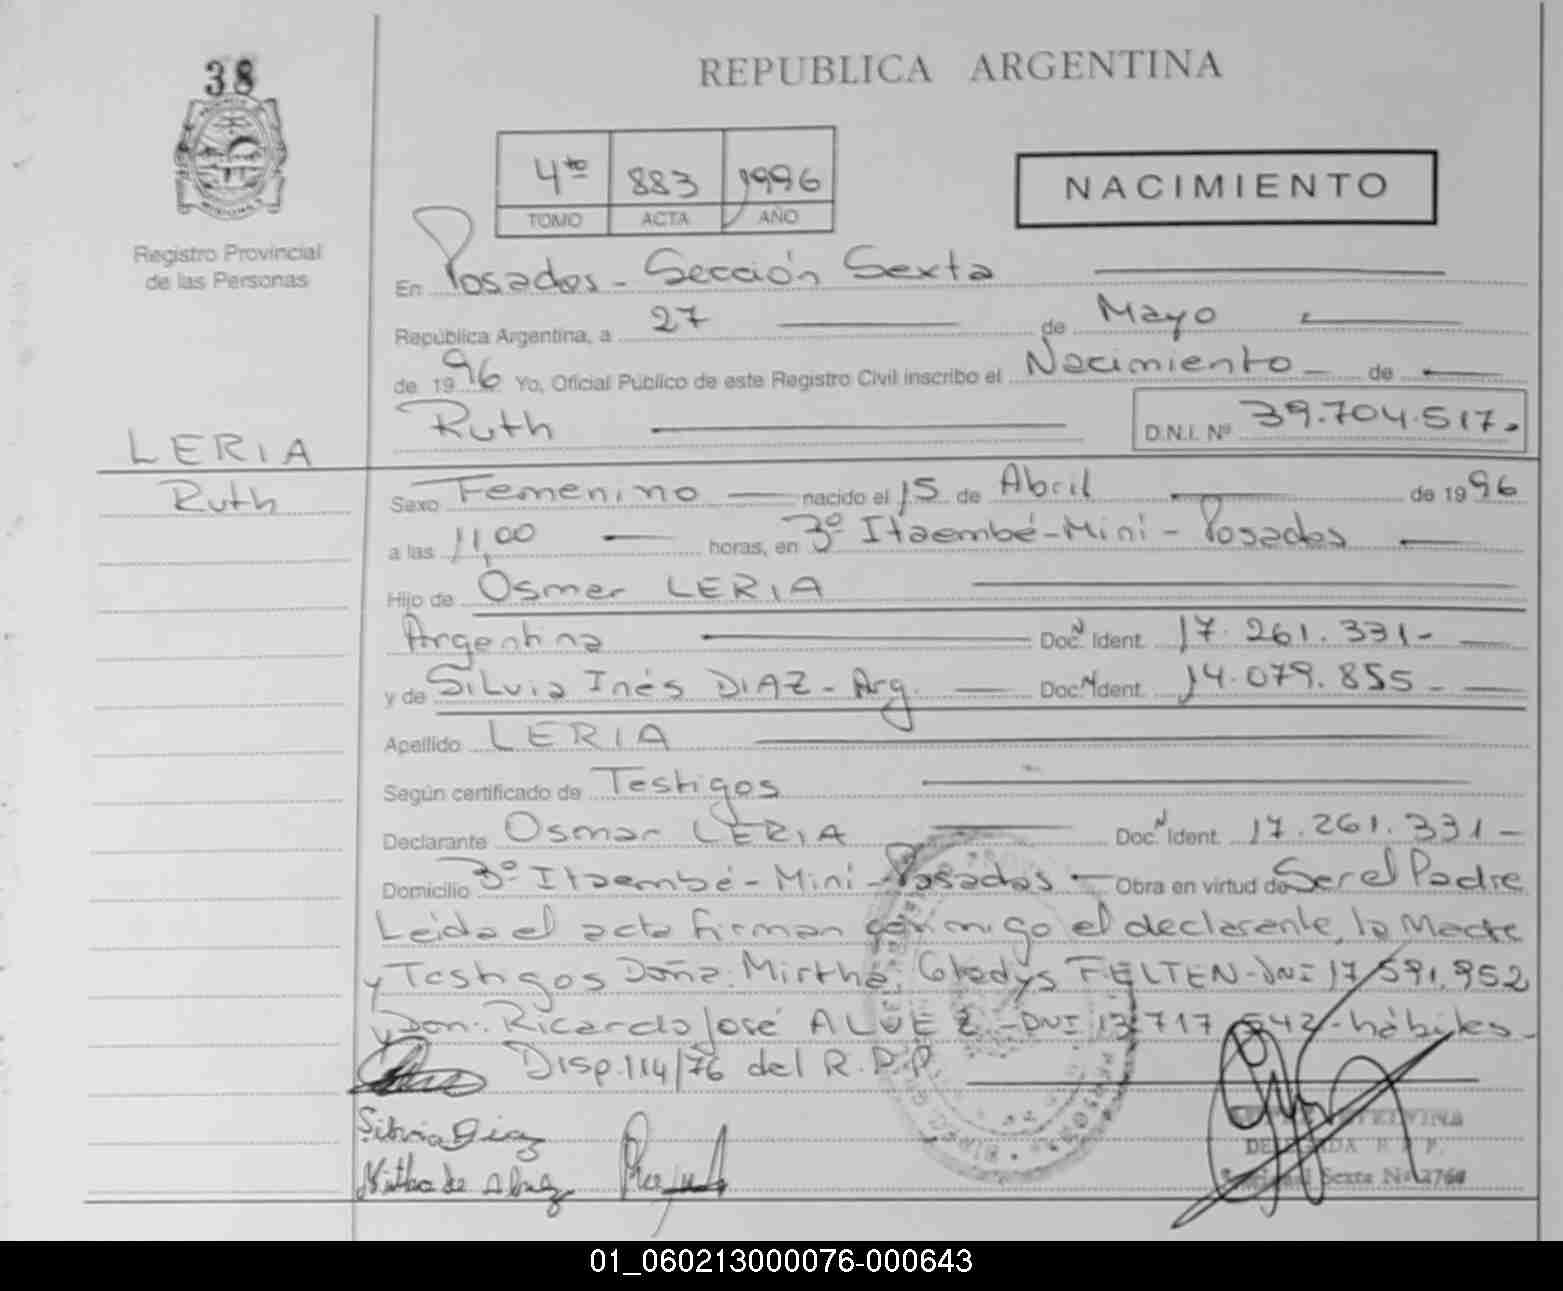 38
REPUBLICA ARGENTINA
4to 883 1996
TOMO ACTA AÑO
NACIMIENTO
Registro Provincial
de las Personas
En Posadas - Sección Sexta
República Argentina, a 27 de Mayo
de 1996 Yo, Oficial Público de este Registro Civil inscribo el Nacimiento de
Ruth D.N.I. Nº 39.704.517.
LERIA
Ruth
Sexo Femenino nacido el 15 de Abril de 1996
a las 11,00 horas, en 3º Itaembé-Mini - Posadas
Hijo de Osmar LERIA
Argentina Doc. Ident. 17.261.331-
y de Silvia Inés DIAZ - Arg. Doc. Ident. 14.079.855-
Apellido LERIA
Según certificado de Testigos
Declarante Osmar LERIA Doc. Ident. 17.261.331-
Domicilio 3º Itaembé - Mini - Posadas - Obra en virtud de Ser el Padre
Leida el acta firman conmigo el declarante, la Madre
y Testigos Doña. Mirtha Gladys FELTEN - DNI 17.591.952
y Don. Ricardo José ALVEZ - DNI 13.717.542 - hábiles -
Disp. 114/76 del R.P.P.
Silvia Diaz
Sexta Nº 2764
01_060213000076-000643